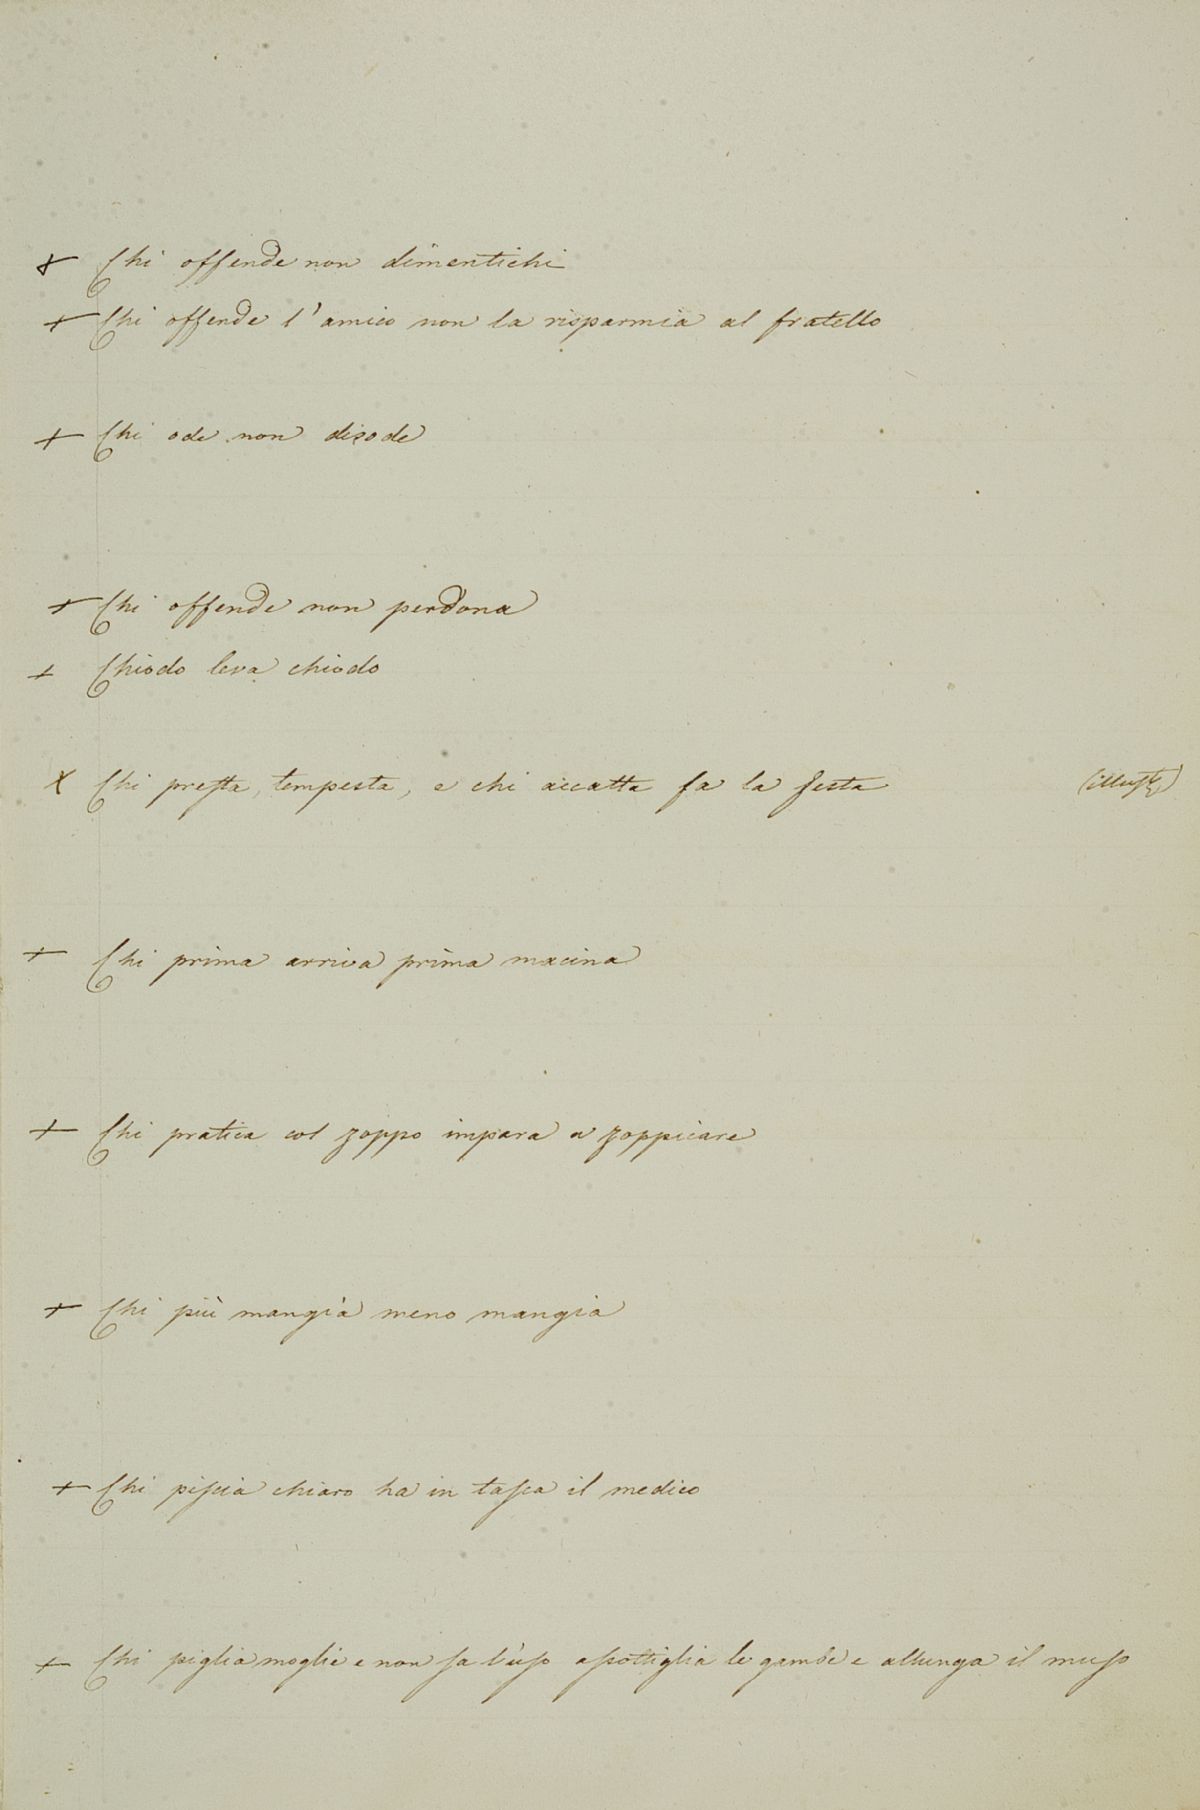 + Chi offende non dimentichi
+ Chi offende l'amico non la risparmia al fratello
+ Chi ode non disode
+ Chi offende non perdona
+ Chiodo leva chiodo
x Chi presta, tempesta, e chi accatta fa la festa (illust)
+ Chi prima arriva prima macina
+ Chi pratica col zoppo impara a zoppicare
+ Chi più mangia meno mangia
+ Chi piscia chiaro ha in tasca il medico
+ Chi piglia moglie e non sa l'uso assottiglia le gambe e allunga il muso